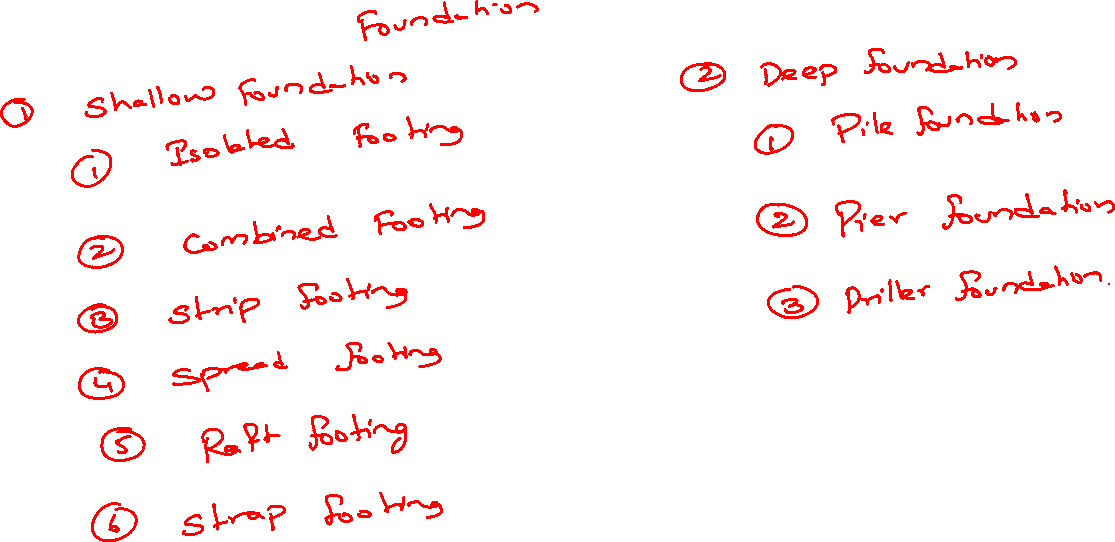 Foundation
① Shallow Foundation
① Isolated Footing
② Combined Footing
③ Strip footing
④ Spread footing
⑤ Raft footing
⑥ Strap footing
② Deep foundation
① Pile foundation
② Pier foundation
③ Driller foundation.